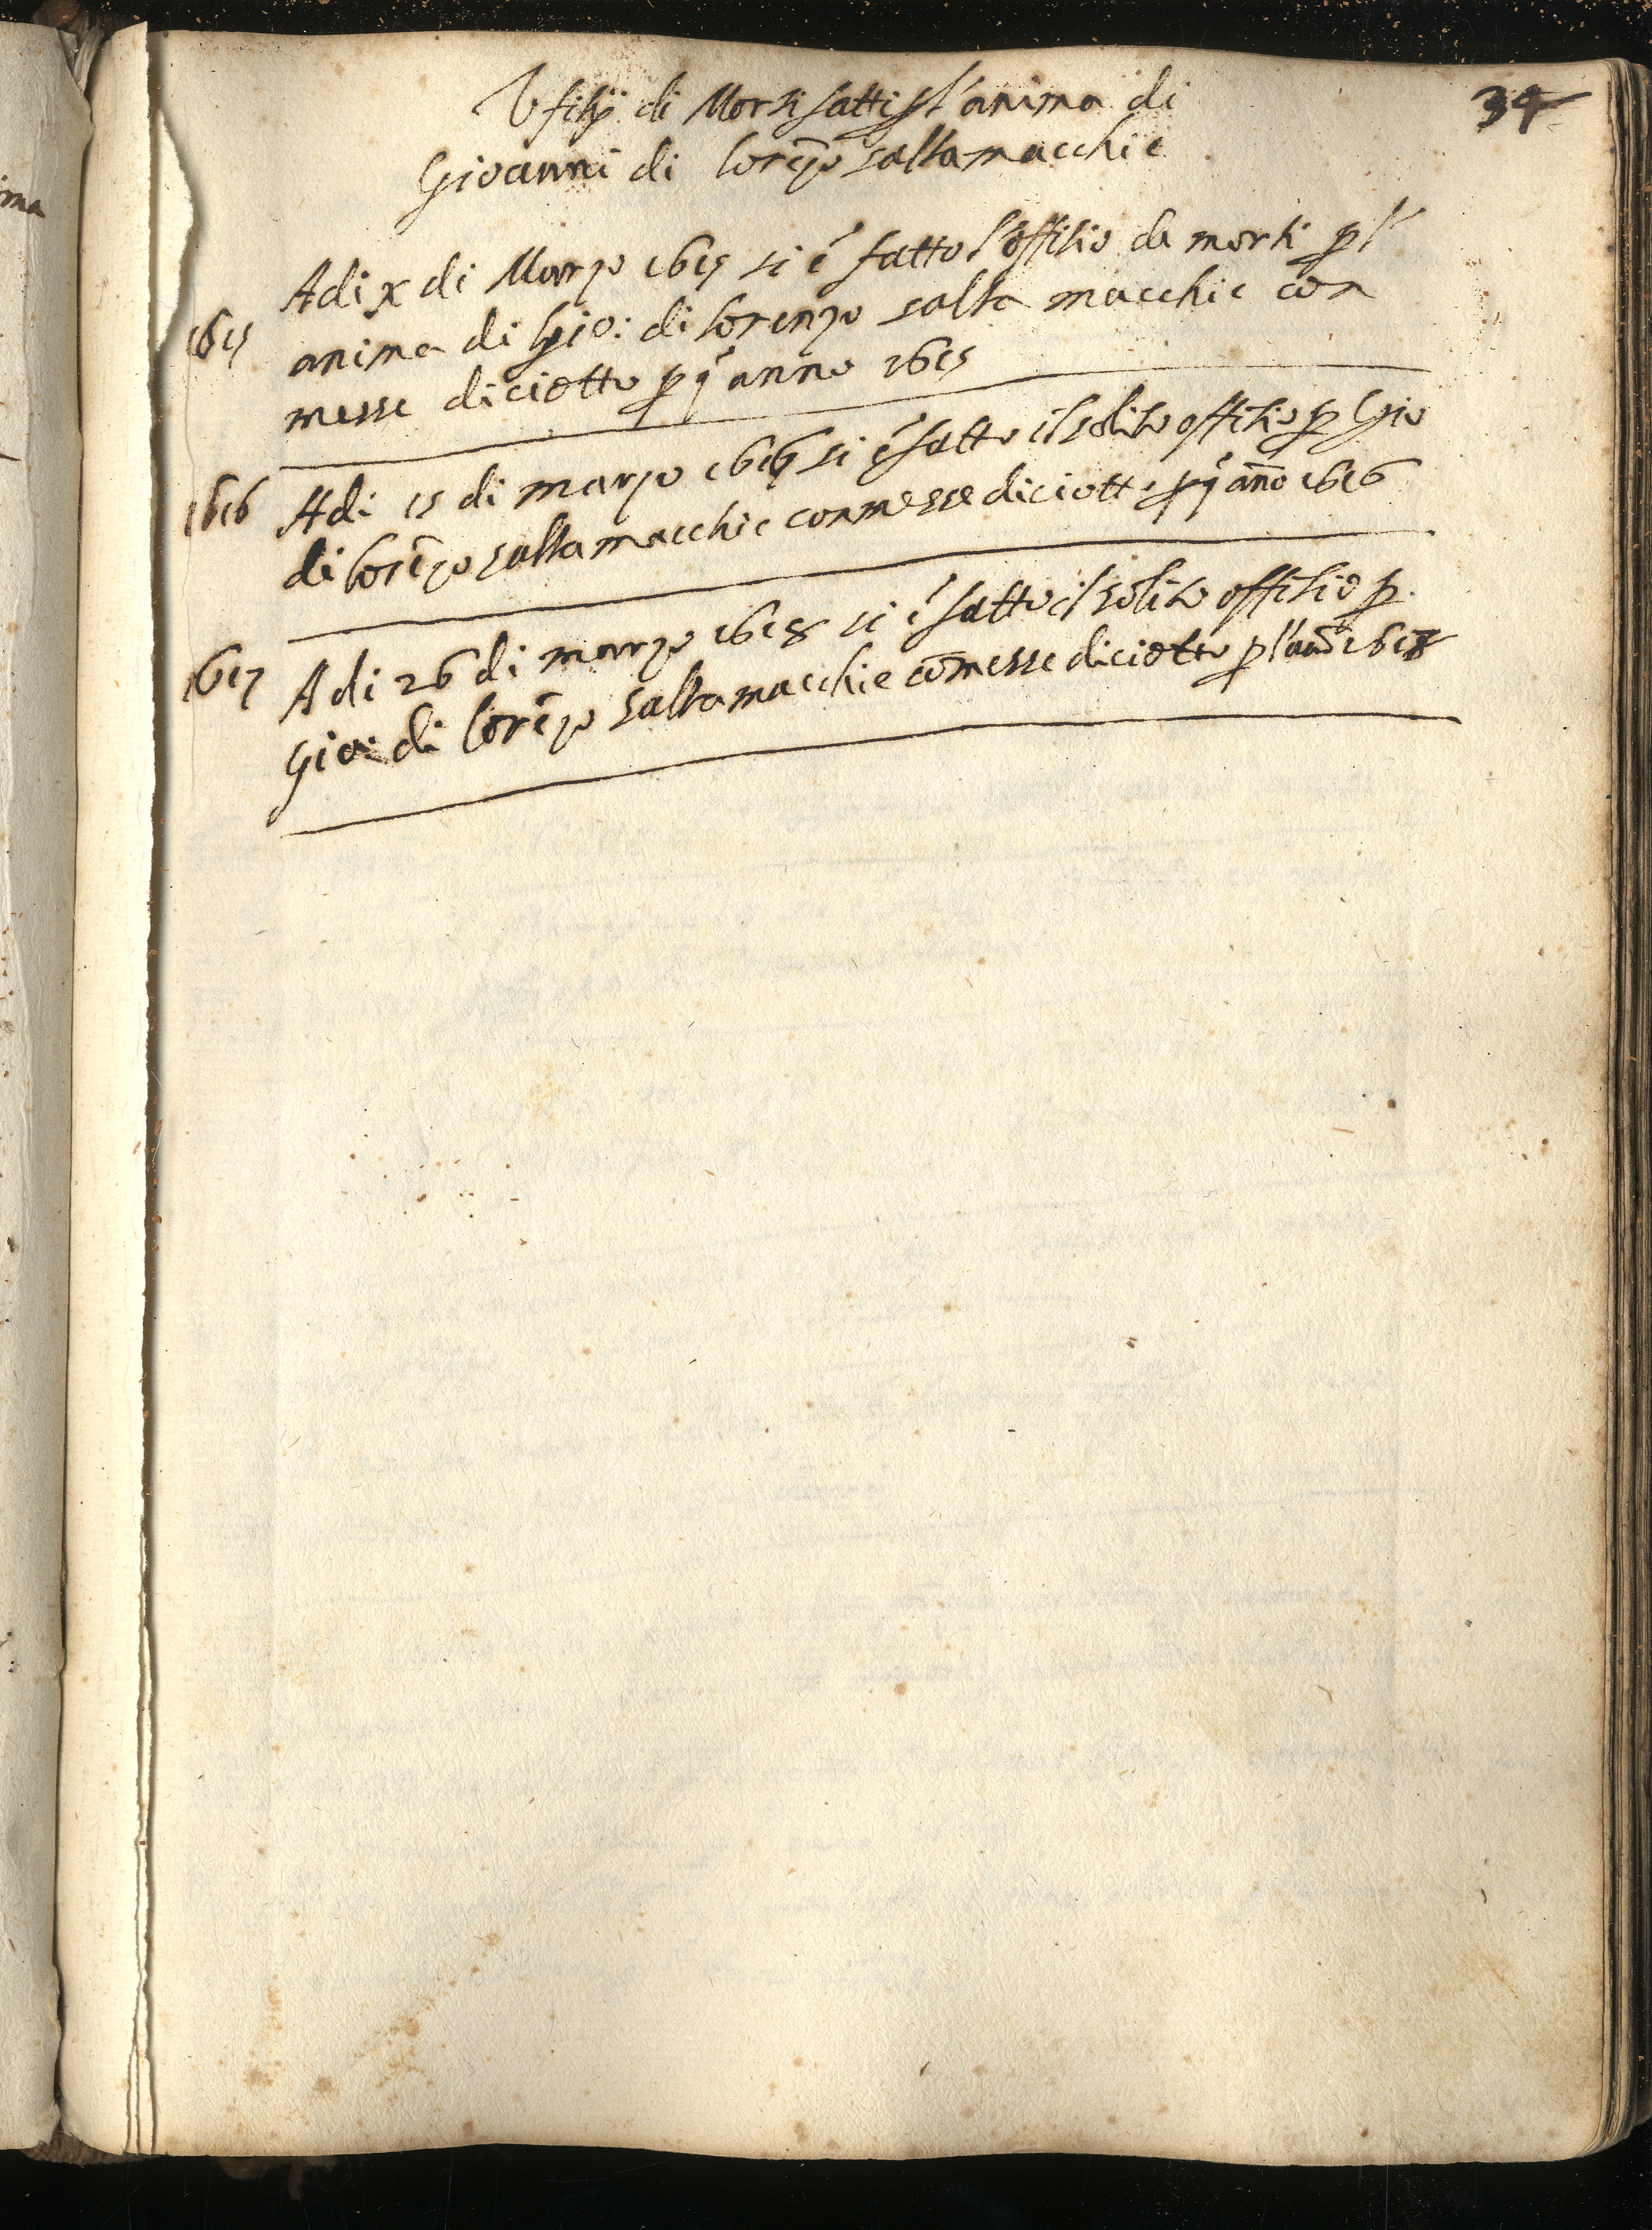 34
Ufitij di Morti fatti p l'anima di
Giovanni di lorēzo saltamacchie
Adi x di Marzo 1615 si é fatto l'offitio da morti p l'
1615
anima di Gio: di lorenzo salta macchie con
messe diciotto p q° anno 1615
1616 Adi 15 di marzo 1616 si é fatto il solito offitio p Gio
di lorēzo saltamacchie con messe diciotto p q° año 1616
1617 Adi 26 di marzo 1618 si é fatto il solito offitio p.
Gio: di lorēzo saltamacchie cō messe diciotto p l'año 1618
ima